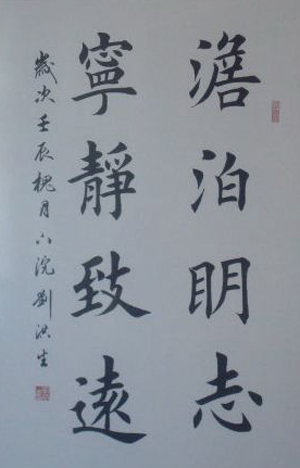 澹泊明志
寧靜致遠
歲次壬辰槐月下浣劉洪生